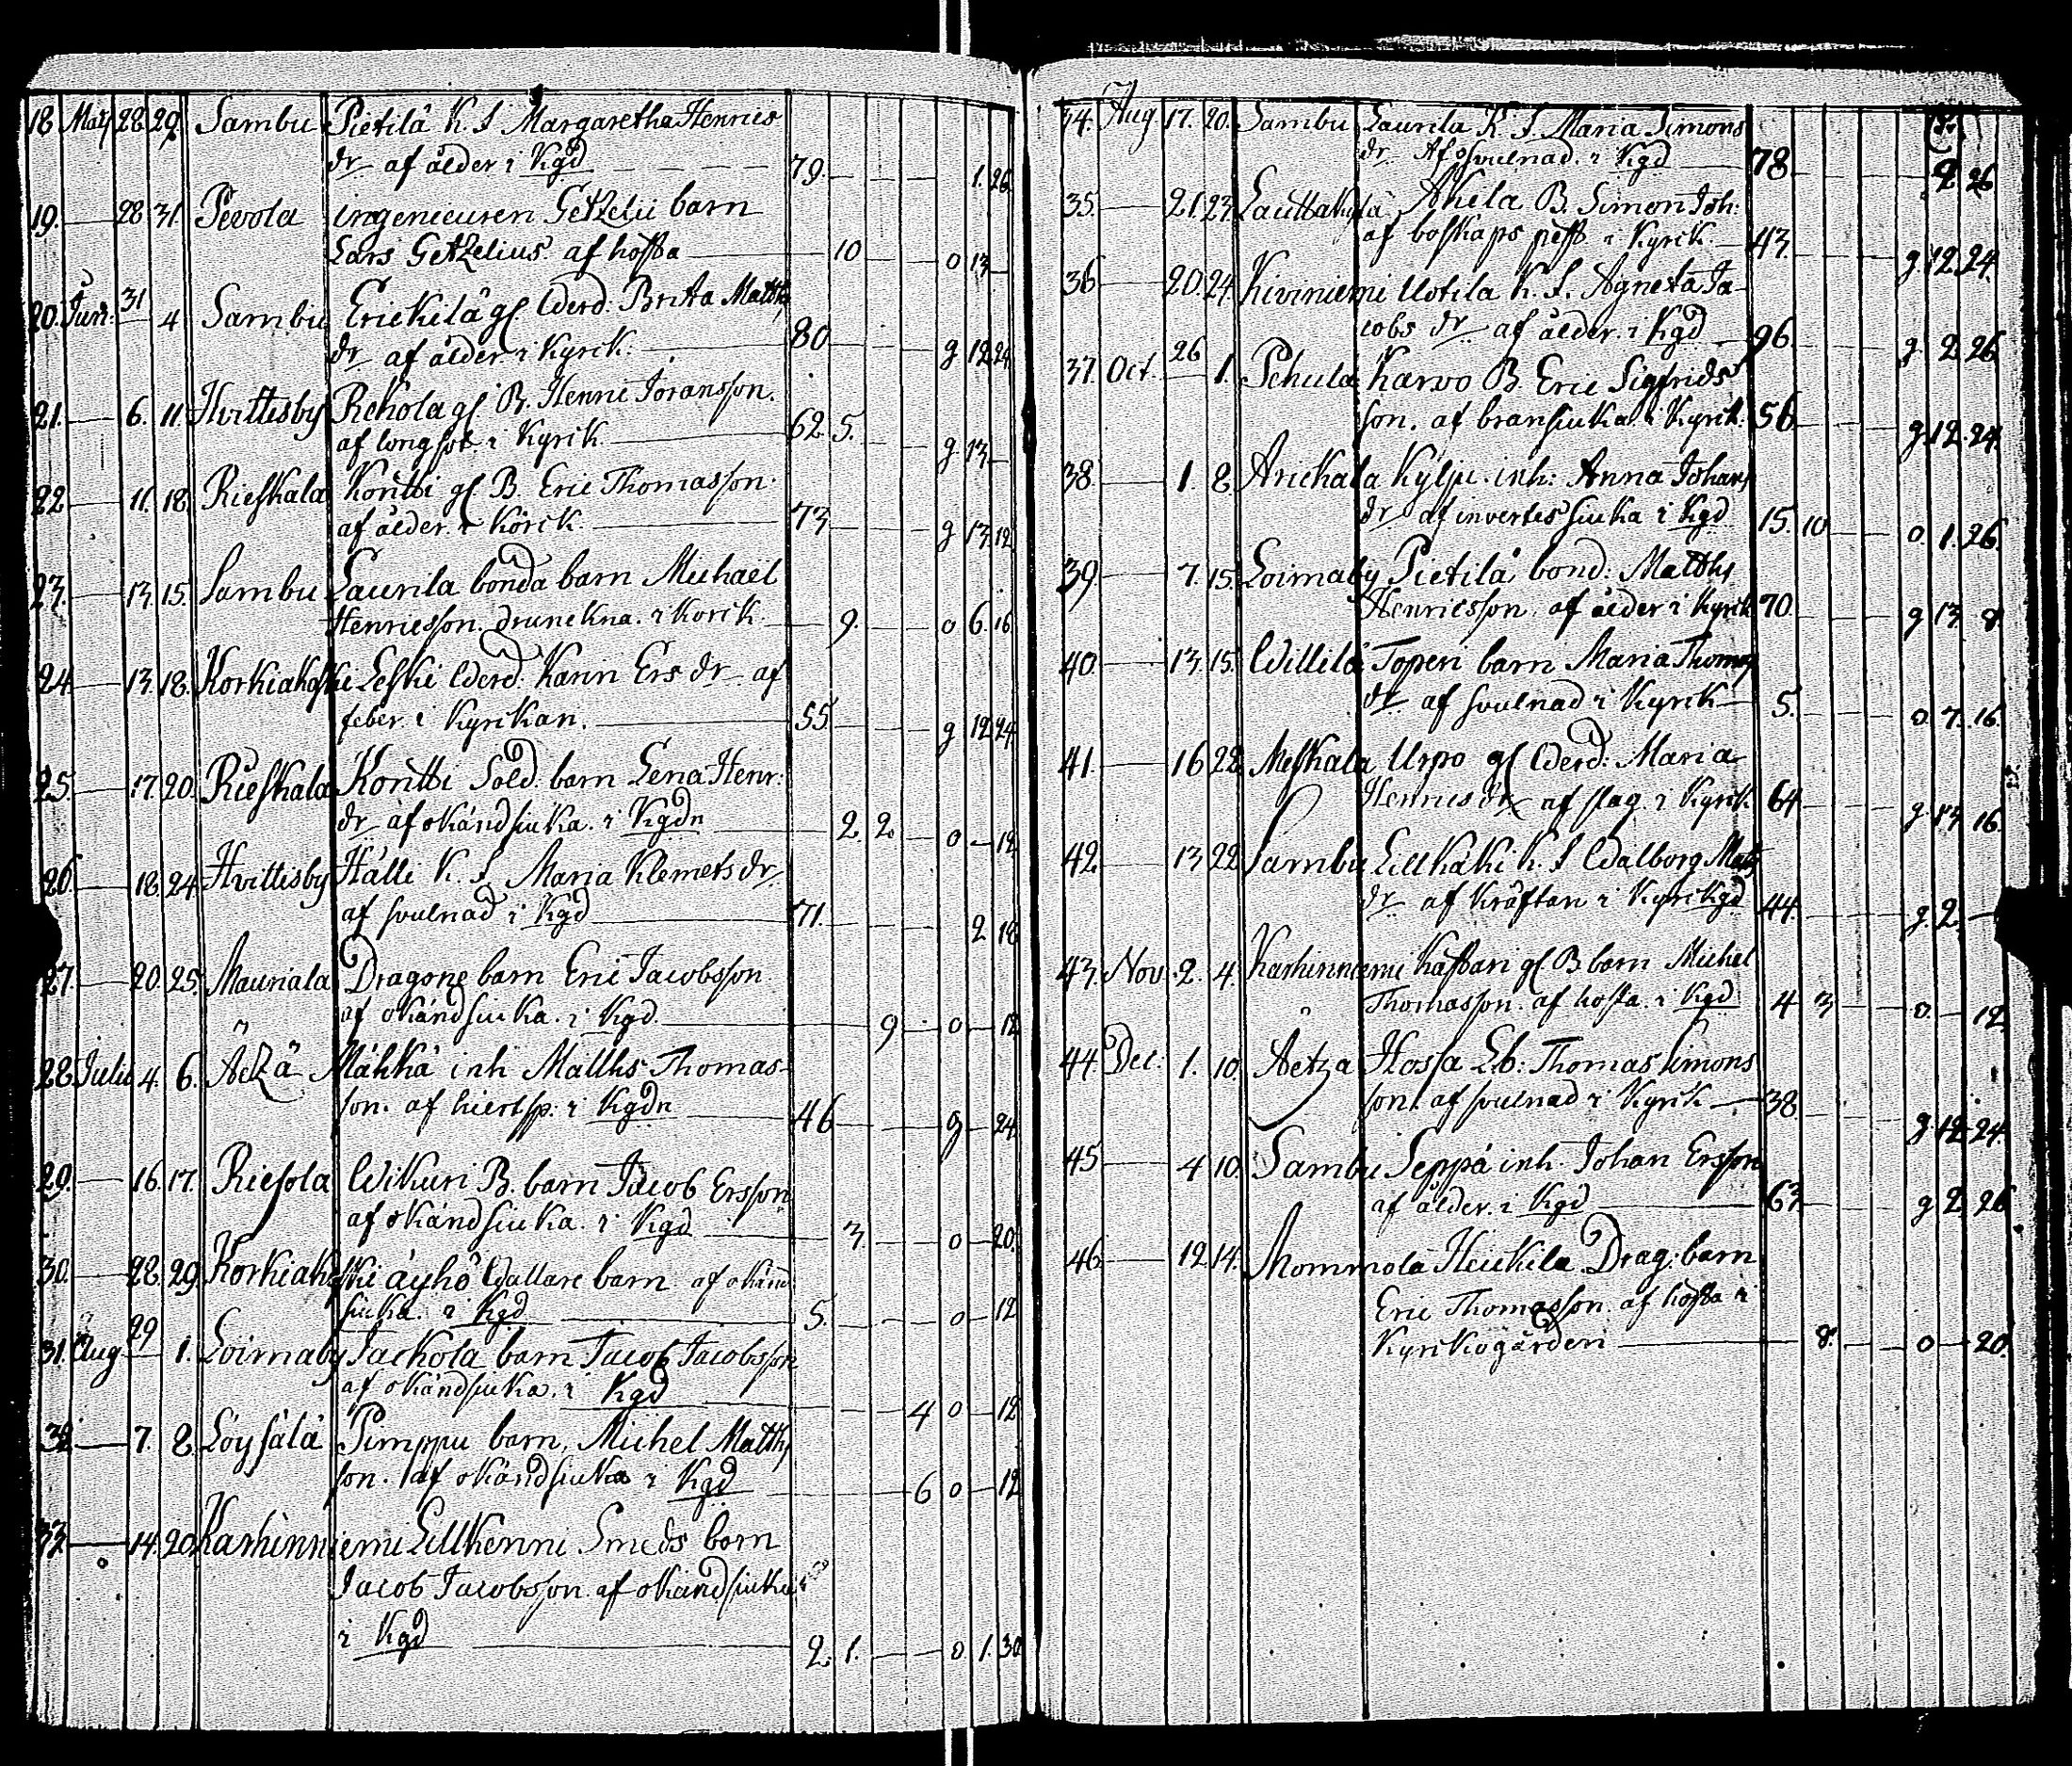 18 Maij 28 29 Sambu Pietilä K. I Margaretha Henrics
dr af ålder i Kgd 79. 1. 26
19. 28 31. Pevola ingenieuren Getzelii barn
Lars Getzelius af hosta 10 o 13
20. Juni: 31 4 Sambu Erickilä gl Wärd. Brita Matth
dr af ålder i Kyrik: 80 g 12 24
21. 6. 11. Hvittisby Rekola gl. B. Henric Joransson.
af lungsot i Kyrik. 62 5. g. 13
22 11. 18. Rieskala Kontti gl. B. Eric Thomasson.
af ålder i Körck. 73 g 13 12
23. 13. 15. Sambu Laurila bonda barn Michael
Henricsson. drunckna. i Korik. 9. o 6. 16
24 13. 18. Korkiakoski Leski Wärd. Karin Ers dr af
feber i Kyrikan. 55 g 12 24
25. 17. 20. Rieskala Kontti Sold. barn Lena Henr:
dr af okänd siuka. i Kgdn 2. 2. o 12
26. 18. 24. Hvittisby Hälli K. I Maria Klemets dr
af svulnad i Kgd 71. 2 18
27. 20. 25. Mauriala Dragone barn Eric Jacobsson
af okänd siuka. i Kgd. 9 o 12
28. Julii 4. 6. Aetzä Mähkä inh Matths Thomas-
son. af hiertsp: i Kgdn 46 g 24
29. 16. 17. Riesola Wikuri B. barn Jacob Ersson
af okänd siuka. i Kgd 3. o 20.
30. 28. 29. Korkiakoski äyhö Wallare barn af okänd
siuka. i Kgd 5. o 12
31. Aug 29 1. Loimaby Jackola barn Jacob Jacobsson
af okänd siuka. i Kgd 4 o 12
32 7. 8. Löysälä Pimppu barn, Michel Matths
son. af okänd siuka i Kgd 6 o 12
33 14. 20. Karhinniemi Lillkenni Smeds barn
Jacob Jacobsson. af okänd siuka
i Kgd 2. 1. o. 1. 30
34. Aug 17. 20. Sambu Laurila K. I. Maria Simons
dr Af svulnad. i Kgd 78 2 26
35. 21. 23. Lauttakylä Akela B. Simon Joh:
af boskaps pest i Kyrik. 43. g. 12. 24.
36 20. 24. Kiviniemi Uotila K. I. Agneta Ja-
cobs dr af ålder. i Kgd 96. g. 2 26
37. Oct. 26 1. Pehula Karvo B Eric Sigfrids
son. af bränsiuka i Kyrik. 56 g. 12. 24.
38. 1. 8. Anickala Kylju. inh: Anna Johans
dr af invertes siuka i Kgd 15. 10 o. 1. 26.
39. 7. 15. Loimaby Pietilä bond: Matths
Henricsson. af ålder i Kyrik 70. g 13 8
40. 13. 15. Willilä Toperi barn Maria Thoms
dr af svulnad i Kyrik 5. o. 7. 16.
41. 16 22 Meskala Urpo gl Wärd: Maria
Henrics dr af slag. i Kyrik 64 g 13 16.
42. 13 22 Sambu Lillkäki K. I Walborg Matts
dr af Kräftan i Kyrikgd 44. g. 2.
43. Nov 2. 4. Karhinniemi Kaftari gl. B barn Michel
Thomasson. af hosta. i Kgd 4 3 o 12
44. Dec: 1. 10. Aetza Hossa Lb: Thomas Simons
son. af svulnad i Kyrik 38. g. 12. 24.
45 4 10. Sambu Seppä inh. Johan Ersson
af ålder. i Kgd 63 g 2. 26
46. 12. 14. Mommola Heickila Drag: barn
Eric Thomasson. af hosta i
Kyrikogården 8. o 20.